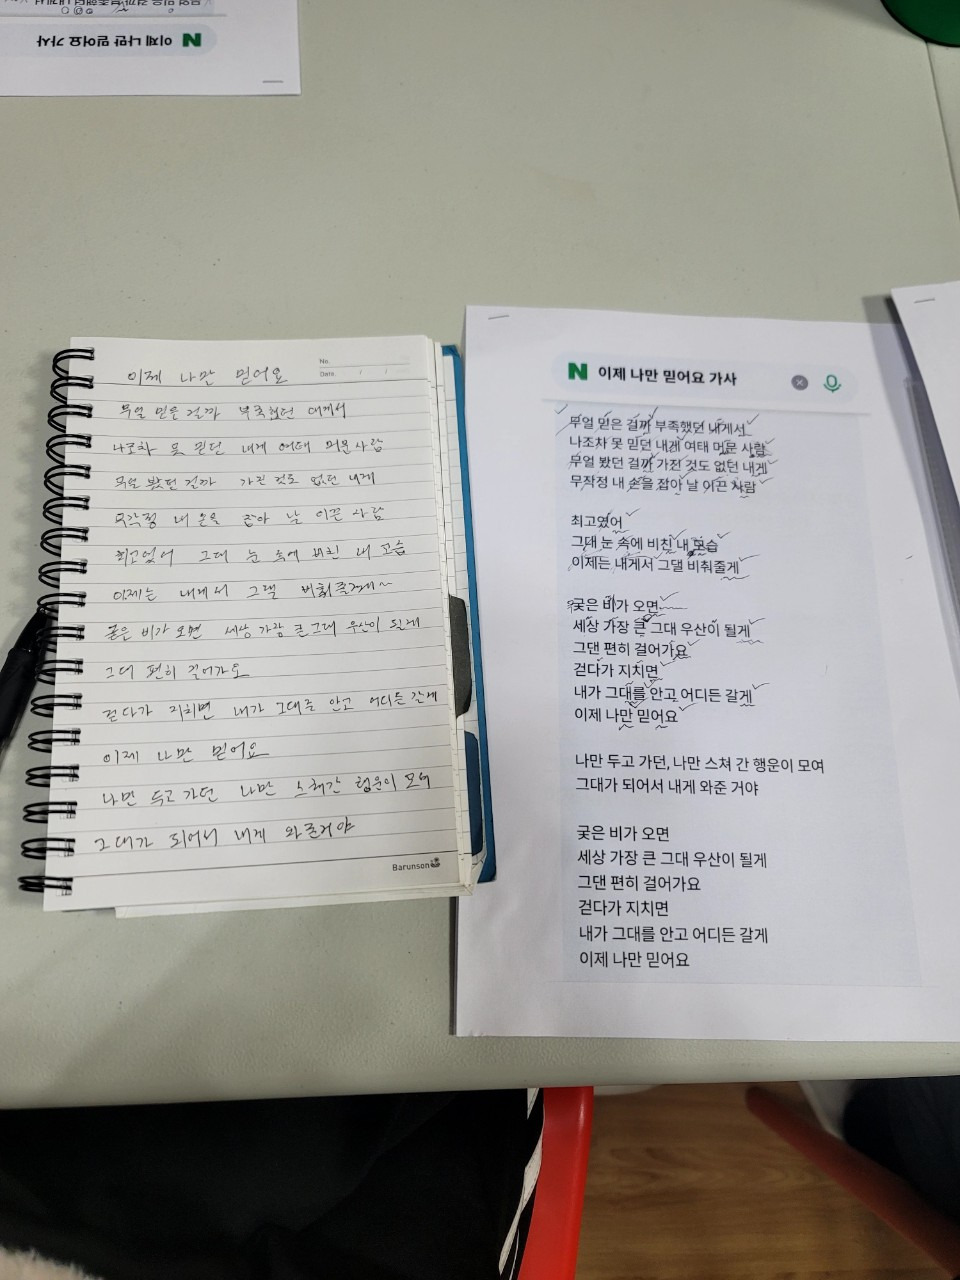 이제 나만 믿어요 가사
이제 나만 믿어요
No.
Date.
무얼 믿은 걸까 부족했던 내게서
나조차 못 믿던 내게 여태 머문 사람
무얼 봤던 걸까 가진 것도 없던 내게
무작정 내 손을 잡아 날 이끈 사람
최고였어 그대 눈 속에 비친 내 모습
이제는 내게서 그댈 비춰줄게~
궂은 비가 오면 세상 가장 큰 그대 우산이 될게
그대 편히 걸어가요
걷다가 지치면 내가 그대를 안고 어디든 갈게
이제 나만 믿어요
나만 두고 가던 나만 스쳐간 행운이 모여
그대가 되어서 내게 와준거야
Barunson
N 이제 나만 믿어요 가사
무얼 믿은 걸까 부족했던 내게서
나조차 못 믿던 내게 여태 머문 사람
무얼 봤던 걸까 가진 것도 없던 내게
무작정 내 손을 잡아 날 이끈 사람
최고였어
그대 눈 속에 비친 내 모습
이제는 내게서 그댈 비춰줄게
궂은 비가 오면
세상 가장 큰 그대 우산이 될게
그댄 편히 걸어가요
걷다가 지치면
내가 그대를 안고 어디든 갈게
이제 나만 믿어요
나만 두고 가던, 나만 스쳐 간 행운이 모여
그대가 되어서 내게 와준 거야
궂은 비가 오면
세상 가장 큰 그대 우산이 될게
그댄 편히 걸어가요
걷다가 지치면
내가 그대를 안고 어디든 갈게
이제 나만 믿어요